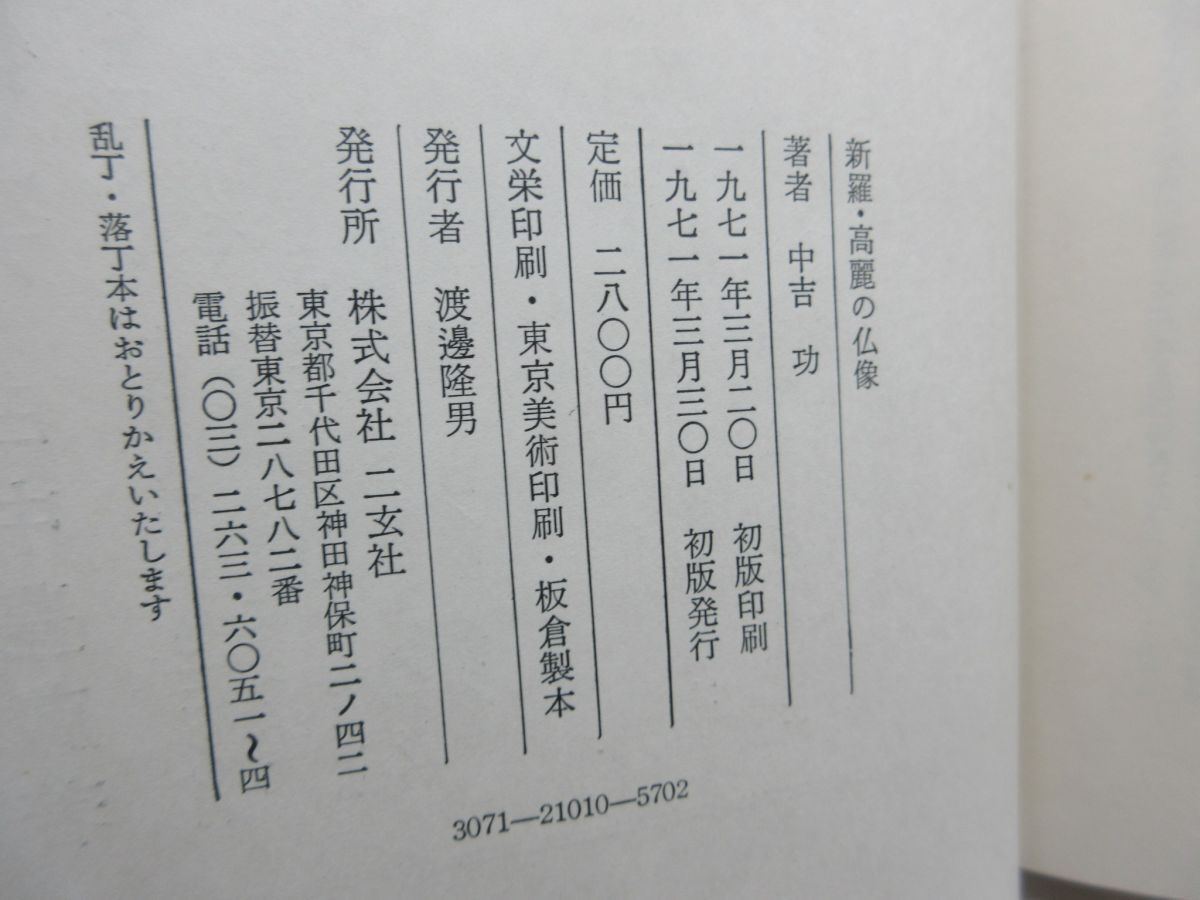 新羅・高麗の仏像
著者　中吉　功
一九七一年三月二〇日　初版印刷
一九七一年三月三〇日　初版発行
定価　二八〇〇円
文栄印刷・東京美術印刷・板倉製本
発行者　渡邊隆男
発行所　株式会社　二玄社
東京都千代田区神田神保町二ノ四二
振替東京二八七八二番
電話（〇三）二六三・六〇五一〜四
乱丁・落丁本はおとりかえいたします
3071—21010—5702